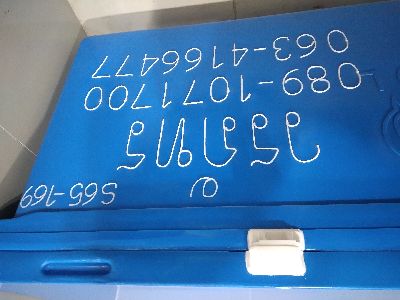 S65-169
วรภัทร
089-1071700
063-4166477